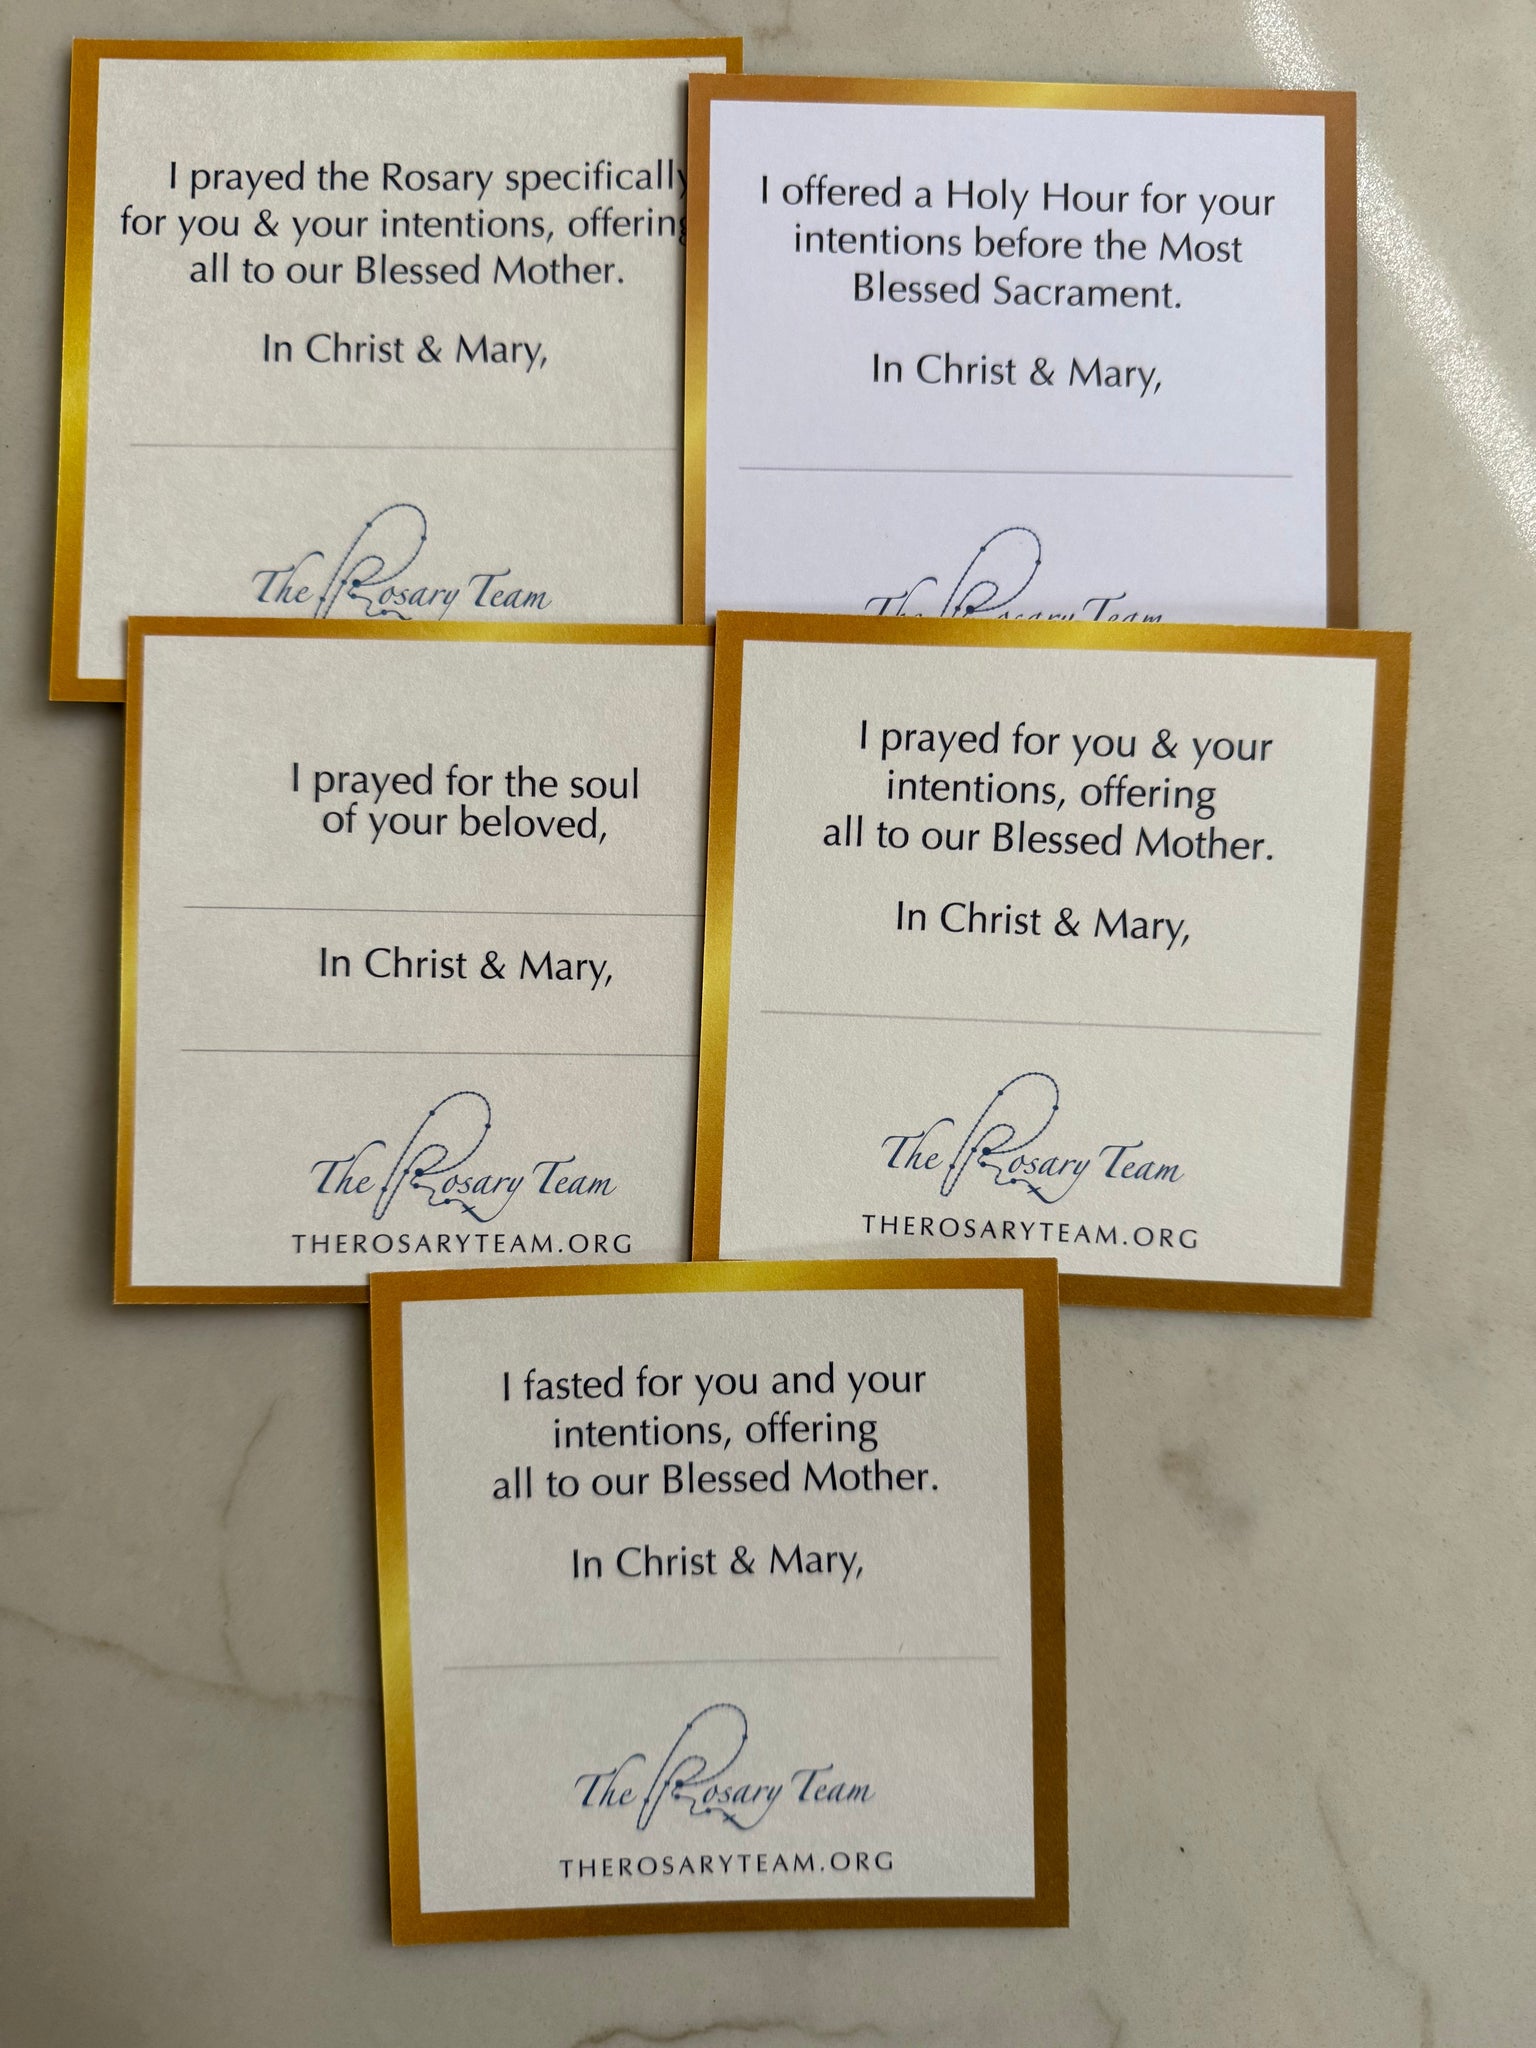 I prayed the Rosary specifically
for you & your intentions, offering
all to our Blessed Mother.
In Christ & Mary,
The Rosary Team
I offered a Holy Hour for your
intentions before the Most
Blessed Sacrament.
In Christ & Mary,
The Rosary Team
I prayed for the soul
of your beloved,
In Christ & Mary,
The Rosary Team
THEROSARYTEAM.ORG
I prayed for you & your
intentions, offering
all to our Blessed Mother.
In Christ & Mary,
The Rosary Team
THEROSARYTEAM.ORG
I fasted for you and your
intentions, offering
all to our Blessed Mother.
In Christ & Mary,
The Rosary Team
THEROSARYTEAM.ORG